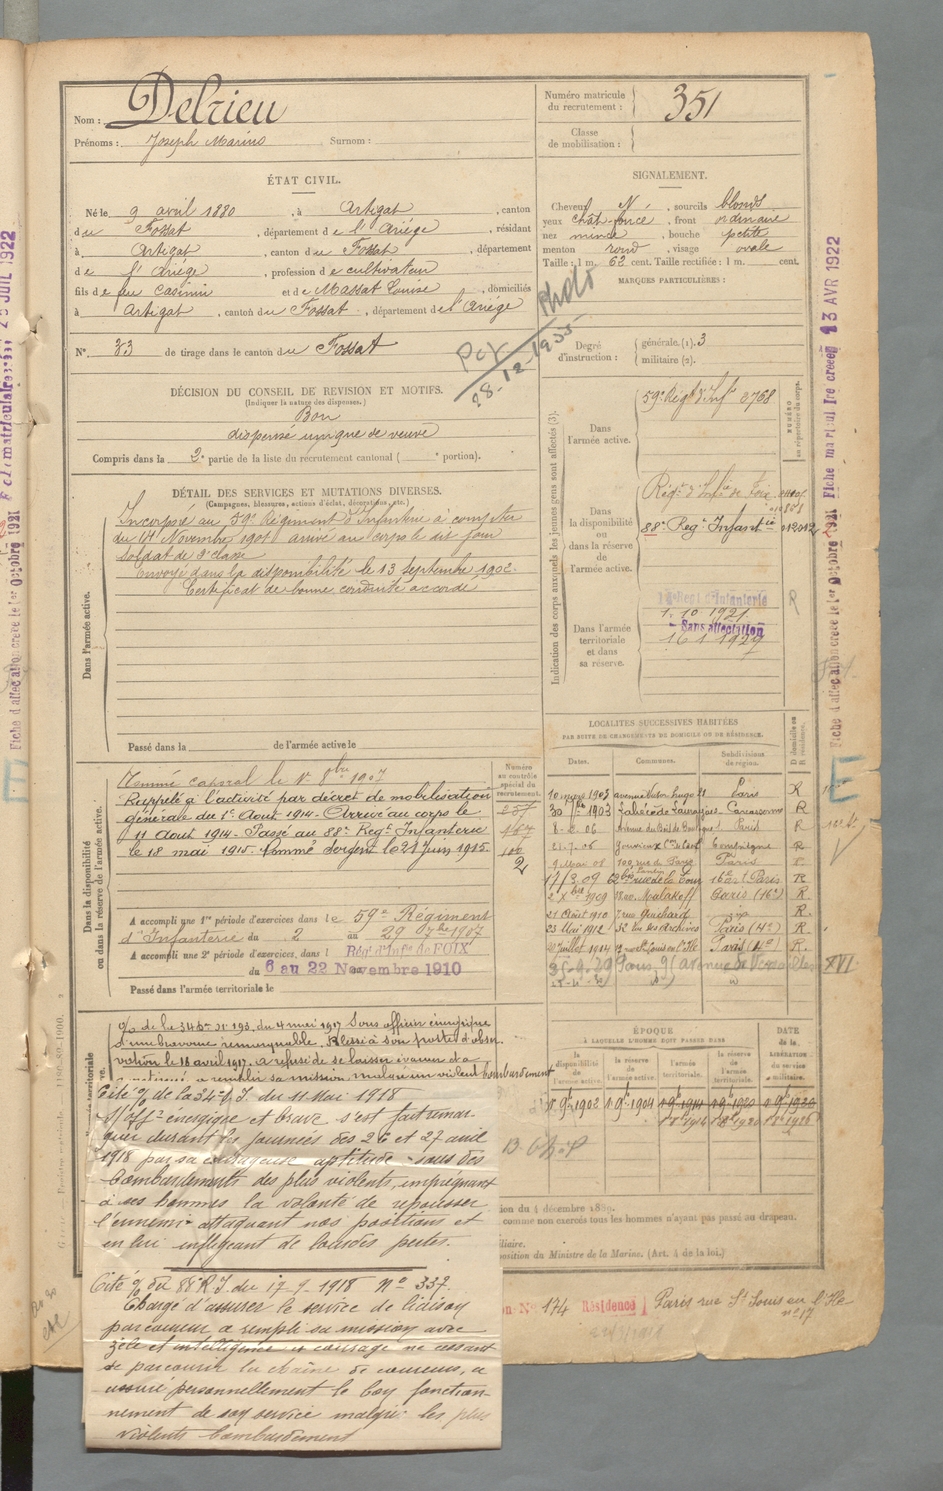 Nom : Delrieu
Prénoms : Joseph Marius Surnom :
Numéro matricule du recrutement : 351
Classe de mobilisation :
ÉTAT CIVIL.
Né le 9 avril 1880, à Artigat, canton
du Fossat, département de l'Ariège, résidant
à Artigat, canton du Fossat, département
de l'Ariège, profession de cultivateur
fils de feu Casimir et de Massat Louise, domiciliés
à Artigat, canton du Fossat, département de l'Ariège
N° 33 de tirage dans le canton du Fossat
Pcx Photo
28-12-1935
SIGNALEMENT.
Cheveux N, sourcils blonds
yeux chât-foncé, front ordinaire
nez mince, bouche petite
menton rond, visage ovale
Taille : 1 m. 62 cent. Taille rectifiée : 1 m. cent.
MARQUES PARTICULIÈRES :
Degré d'instruction : générale. (1). 3
militaire (2).
DÉCISION DU CONSEIL DE REVISION ET MOTIFS.
(Indiquer la nature des dispenses.)
Bon
dispensé unique de veuve
Compris dans la 2e partie de la liste du recrutement cantonal ( e portion).
DÉTAIL DES SERVICES ET MUTATIONS DIVERSES.
(Campagnes, blessures, actions d'éclat, décorations, etc.)
Dans l'armée active.
Incorporé au 59e Régiment d'Infanterie à compter
du 14 Novembre 1901 arrivé au corps le dit jour
soldat de 2e classe
Envoyé dans la disponibilité le 13 Septembre 1902.
Certificat de bonne conduite accordé
Passé dans la de l'armée active le
Indication des corps auxquels les jeunes gens sont affectés (3).
NUMÉRO au répertoire du corps.
Dans l'armée active.
59e Régt d'Inf 2768
Dans la disponibilité ou dans la réserve de l'armée active.
Régt d'Infie de Foix
88e Regt Infantie 012012
Dans l'armée territoriale et dans sa réserve.
Regt d'Infanterie
1.10.1921
Sans affectation
16 1 1929
R
Dans la disponibilité ou dans la réserve de l'armée active.
Numéro au contrôle spécial du recrutement.
Nommé caporal le 1er 8bre 1907
Rappelé à l'activité par décret de mobilisation
générale du 1er Août 1914. Arrivé au corps le
11 Août 1914. Passé au 88e Regt Infanterie
le 18 mai 1915. Nommé sergent le 21 Juin 1915.
2
A accompli une 1re période d'exercices dans le 59e Régiment
d'Infanterie du 2 au 29 7bre 1907
A accompli une 2e période d'exercices, dans l Rég. d'Infie de FOIX
du 6 au 22 Novembre 1910
Passé dans l'armée territoriale le
LOCALITÉS SUCCESSIVES HABITÉES
PAR SUITE DE CHANGEMENTS DE DOMICILE OU DE RÉSIDENCE.
Dates. Communes. Subdivisions de région. D domicile ou R résidence.
10 mars 1903 avenue Victor Hugo Paris R
30 7bre 1903 Carcassonne R
8-2-06 Paris R
21-7-06 R
9 Mai 08 Paris
17/3 09 62bis rue de la Tour 16e art Paris R
2 Xbre 1909 Malakoff Paris (16e) R
21 Août 1910 7 rue Guichard R
23 Mai 1912 52 rue des Archives Paris (4e) R
juillet 1914 rue St Louis en l'Ile Paris (4e) R
Paris, 91 avenue de Versailles XVI
ÉPOQUE
À LAQUELLE L'HOMME DOIT PASSER DANS
DATE de la LIBÉRATION du service militaire.
la disponibilité de l'armée active. la réserve de l'armée active. l'armée territoriale. la réserve de l'armée territoriale.
1er 9bre 1902 1er 9bre 1904 1er 9bre 1914 1er 9bre 1920 1er 9bre 1926
% de la 34e Dn n° 193, du 4 mai 1917 Sous officier énergique
d'une bravoure remarquable. Blessé à son poste d'obser
vation le 18 avril 1917, a refusé de se laisser évacuer et a
continué à remplir sa mission malgré un violent bombardement
Cité % de la 34e D.I. du 11 Mai 1918
S/off énergique et brave s'est fait remar-
quer durant les journées des 26 et 27 avril
1918 par sa courageuse aptitude sous des
bombardements des plus violents, imprégnant
à ses hommes la volonté de repousser
l'ennemi attaquant nos positions et
en lui infligeant de lourdes pertes.
Cité % du 88e R.I. du 17.9.1918 N° 337.
Chargé d'assurer le service de liaison
par coureur a rempli sa mission avec
zèle et intelligence et courage ne cessant
de parcourir la chaîne de coureurs, a
assuré personnellement le bon fonction-
nement de son service malgré les plus
violents bombardements
ion du 4 décembre 1889.
comme non exercés tous les hommes n'ayant pas passé au drapeau.
position du Ministre de la Marine. (Art. 4 de la loi.)
on N° 174 Résidence Paris rue St Louis en l'Ile
n° 17
Fiche d'affectation créée le 1er Octobre 1921
Fiche matricule créée 13 AVR 1922
JUIL 1922
E
E